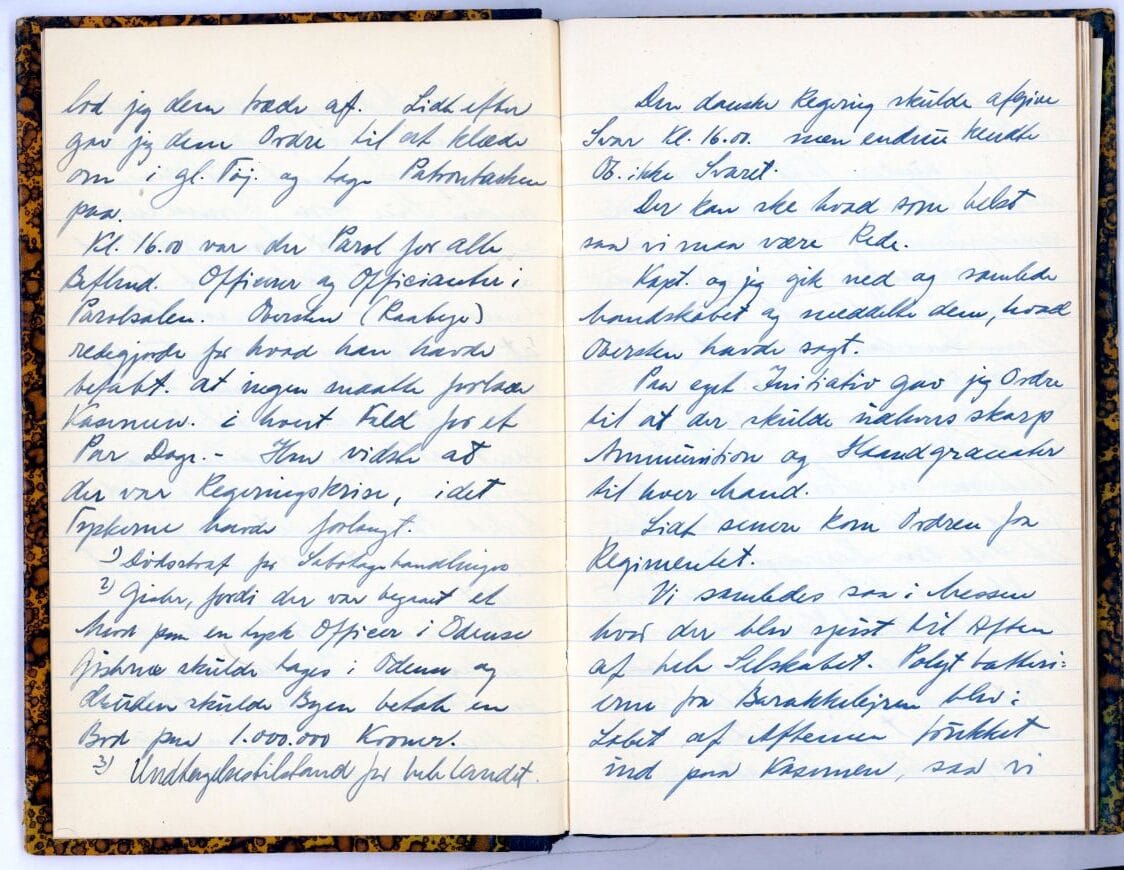 lod jeg dem træde af. Lidt efter
gav jeg dem Ordre til at klæde
om i gl. Tøj. og tage Patrontasken
paa.
Kl. 16.00 var der Parol for alle
Beflmd. Officerer og Officianter i
Parolsalen. Obersten (Raabye)
redegjorde for hvad han havde
befalet. at ingen maatte forlade
Kasernen. i hvert Fald for et
Par Dage.- Han vidste at
der var Regeringskrise, idet
Tyskerne havde forlangt.
1) Dødsstraf for Sabotagehandlinger
2) Gidsler, fordi der var begaaet et
Mord paa en tysk Officer i Odense
Gidslerne skulde tages i Odense og
desuden skulde Byen betale en
Bod paa 1.000.000 Kroner.
3) Undtagelsestilstand for hele Landet.
Den danske Regering skulde afgive
Svar Kl. 16.00. men endnu kendte
Ob. ikke Svaret.
Der kan ske hvad som helst
saa vi maa være Rede.
Kapt. og jeg gik ned og samlede
Mandskabet og meddelte dem, hvad
Obersten havde sagt.
Paa eget Initiativ gav jeg Ordre
til at der skulde udleveres skarp
Ammunition og Haandgranater
til hver Mand.
Lidt senere kom Ordren fra
Regimentet.
Vi samledes saa i Messen
hvor der blev spist til Aften
af hele Selskabet.
erne fra Barakkelejren blev i
Løbet af Aftenen trukket
ind paa Kasernen, saa vi